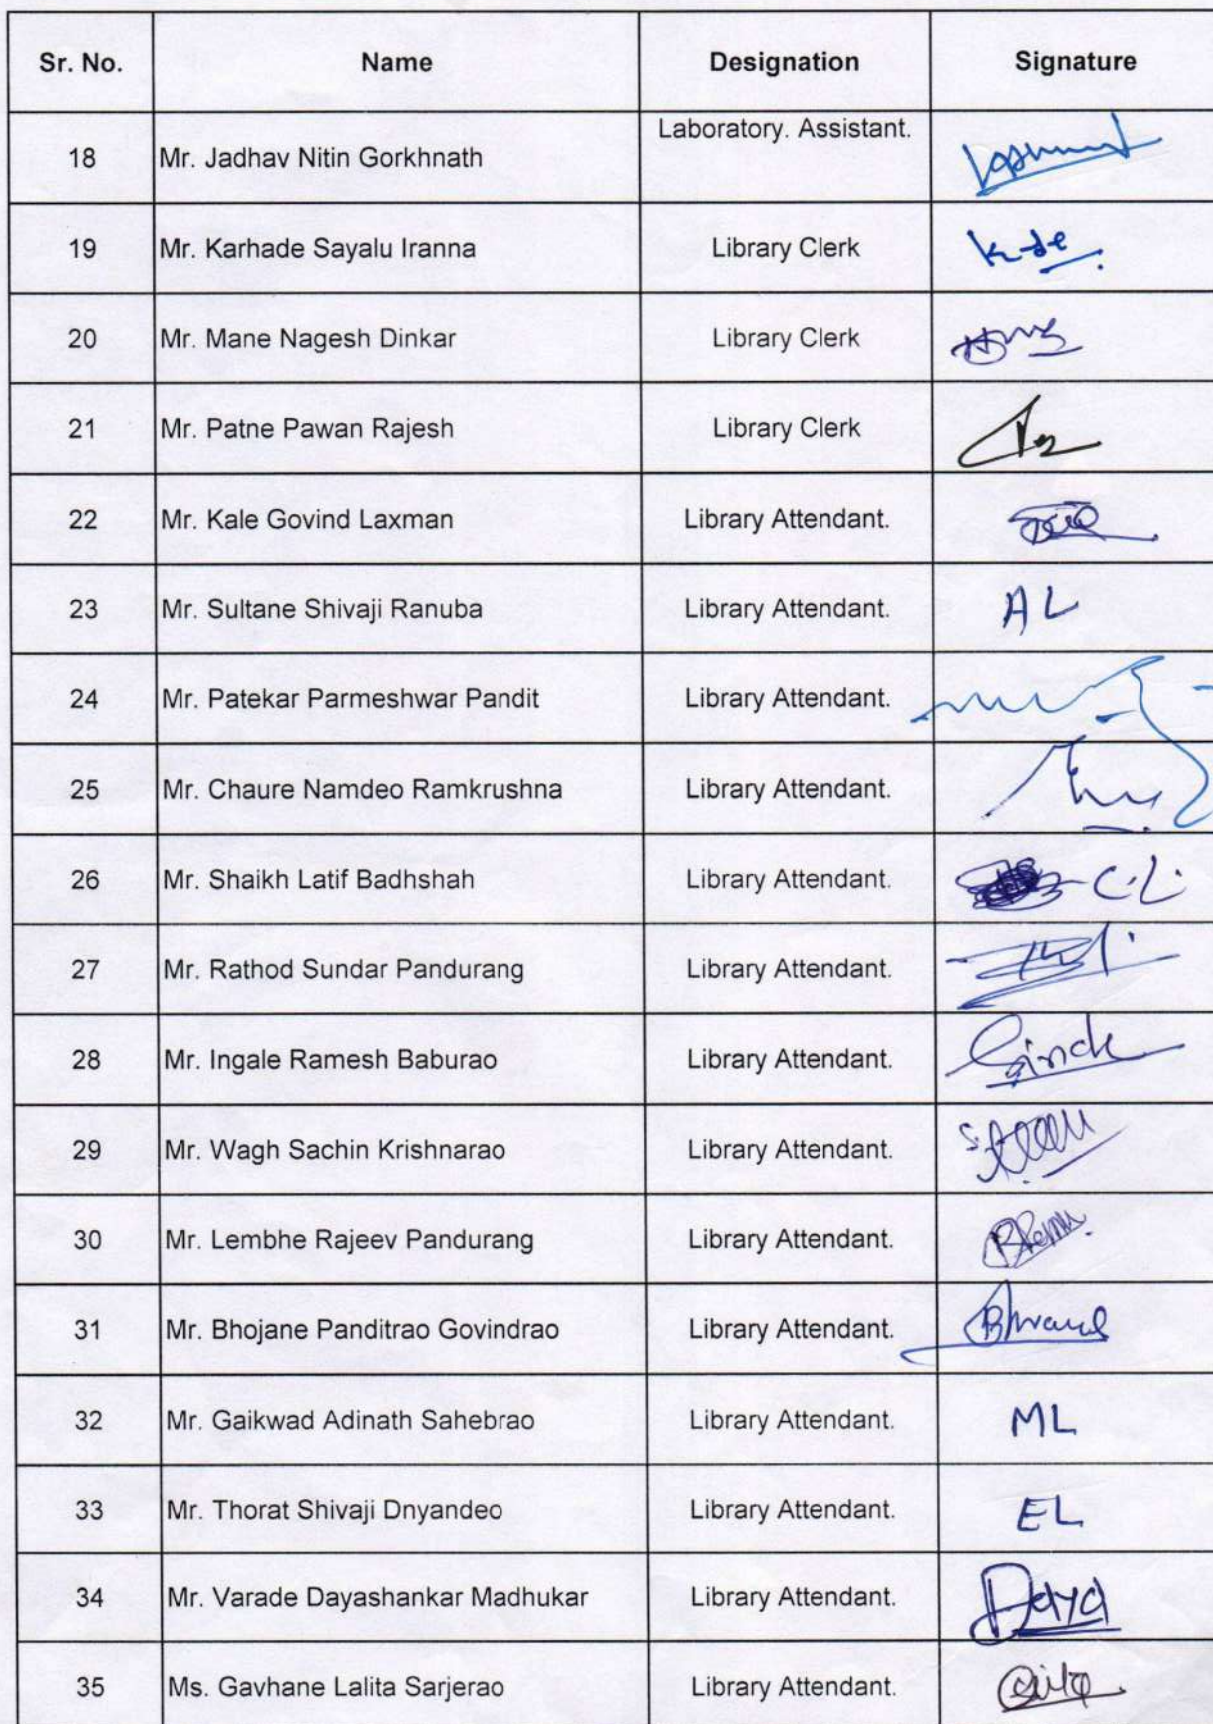 Sr. No. Name Designation Signature
18 Mr. Jadhav Nitin Gorkhnath Laboratory. Assistant.
19 Mr. Karhade Sayalu Iranna Library Clerk
20 Mr. Mane Nagesh Dinkar Library Clerk
21 Mr. Patne Pawan Rajesh Library Clerk
22 Mr. Kale Govind Laxman Library Attendant.
23 Mr. Sultane Shivaji Ranuba Library Attendant. AL
24 Mr. Patekar Parmeshwar Pandit Library Attendant.
25 Mr. Chaure Namdeo Ramkrushna Library Attendant.
26 Mr. Shaikh Latif Badhshah Library Attendant. C.L.
27 Mr. Rathod Sundar Pandurang Library Attendant.
28 Mr. Ingale Ramesh Baburao Library Attendant.
29 Mr. Wagh Sachin Krishnarao Library Attendant.
30 Mr. Lembhe Rajeev Pandurang Library Attendant.
31 Mr. Bhojane Panditrao Govindrao Library Attendant.
32 Mr. Gaikwad Adinath Sahebrao Library Attendant. ML
33 Mr. Thorat Shivaji Dnyandeo Library Attendant. EL
34 Mr. Varade Dayashankar Madhukar Library Attendant. Daya
35 Ms. Gavhane Lalita Sarjerao Library Attendant.